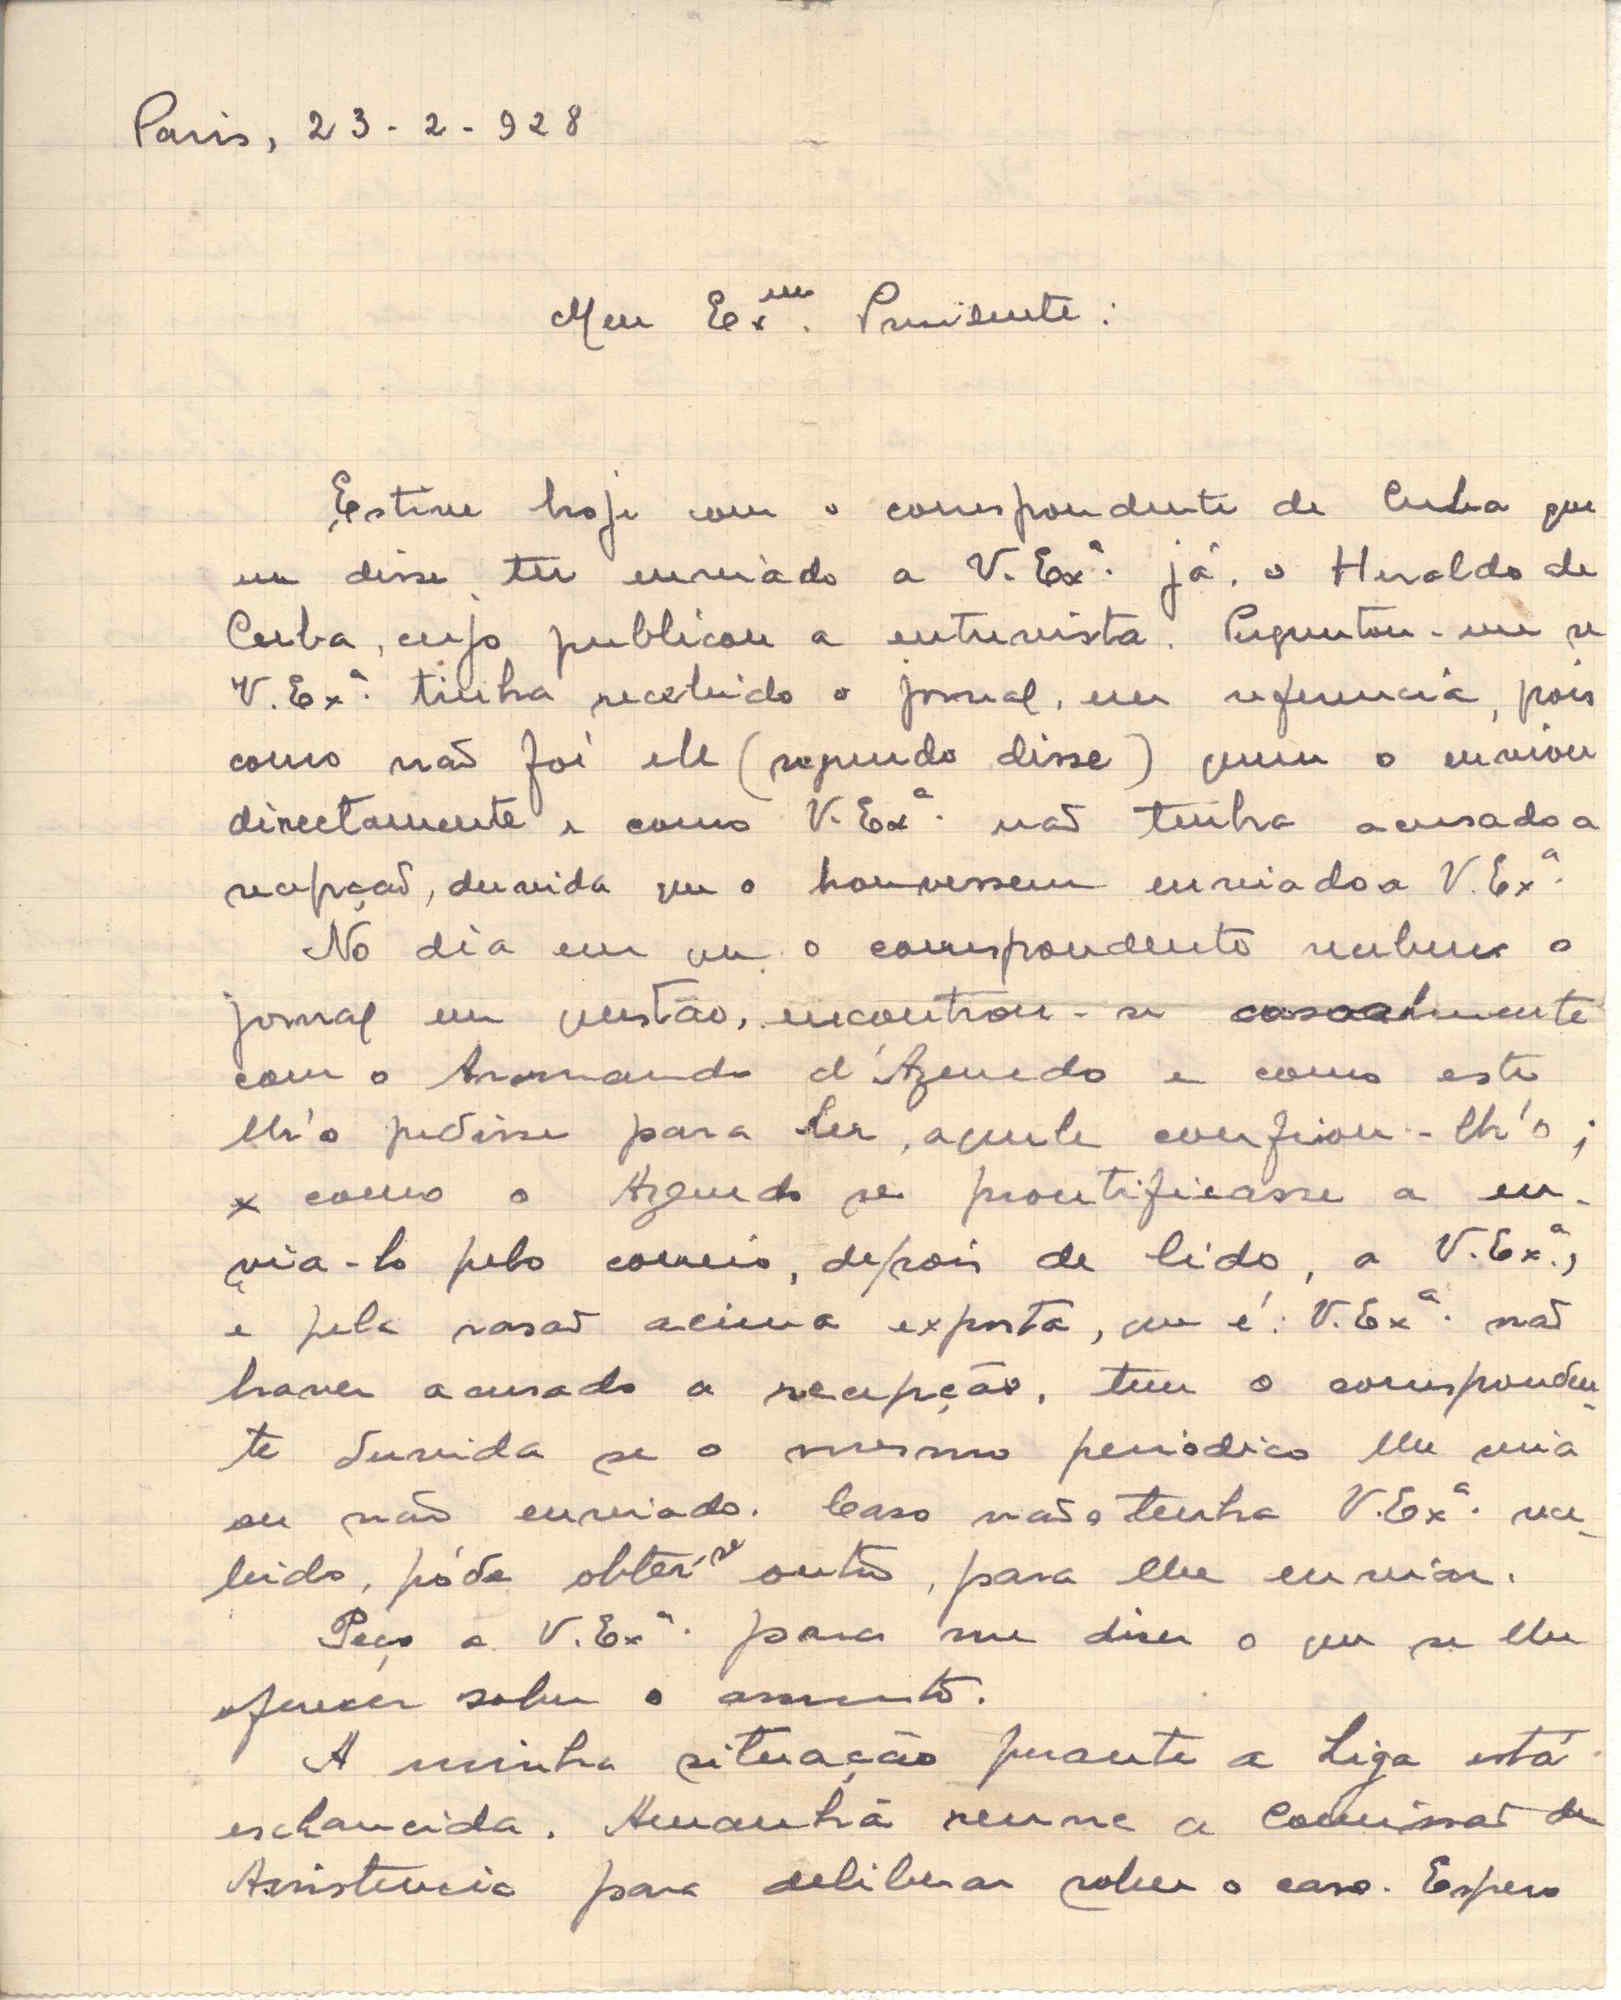 Paris, 23-2-928
Meu Ex.mo Presidente:
Estive hoje com o correspondente de Cuba que
me disse ter enviado a V. Ex.ª já, o Heraldo de
Cuba, cujo publicou a entrevista. Perguntou-me se
V. Ex.ª tinha recebido o jornal, em referencia, pois
como não foi ele (segundo disse) quem o enviou
directamente e como V. Ex.ª não tenha acusado a
recepção, duvida que o houvessem enviado a V. Ex.ª
No dia em que o correspondente recebeu o
jornal em questão, encontrou-se casoalmente
com o Armando d'Azevedo e como este
lh'o pedisse para ler, aquele confiou-lh'o;
e como o Azevedo se prontificasse a en-
via-lo pelo correio, depois de lido, a V. Ex.ª,
e pela rasão acima exposta, que é: V. Ex.ª não
haver acusado a recepção, tem o corresponden-
te duvida se o mesmo periodico lhe seria
ou não enviado. Caso não o tenha V. Ex.ª rece-
bido, póde obter-se outro, para lhe enviar.
Peço a V. Ex.ª para me diser o que se lhe
oferecer sobre o assunto.
A minha situação perante a Liga está
esclarecida. Amanhã reune a Comissão de
Assistencia para deliberar sobre o caso. Espero